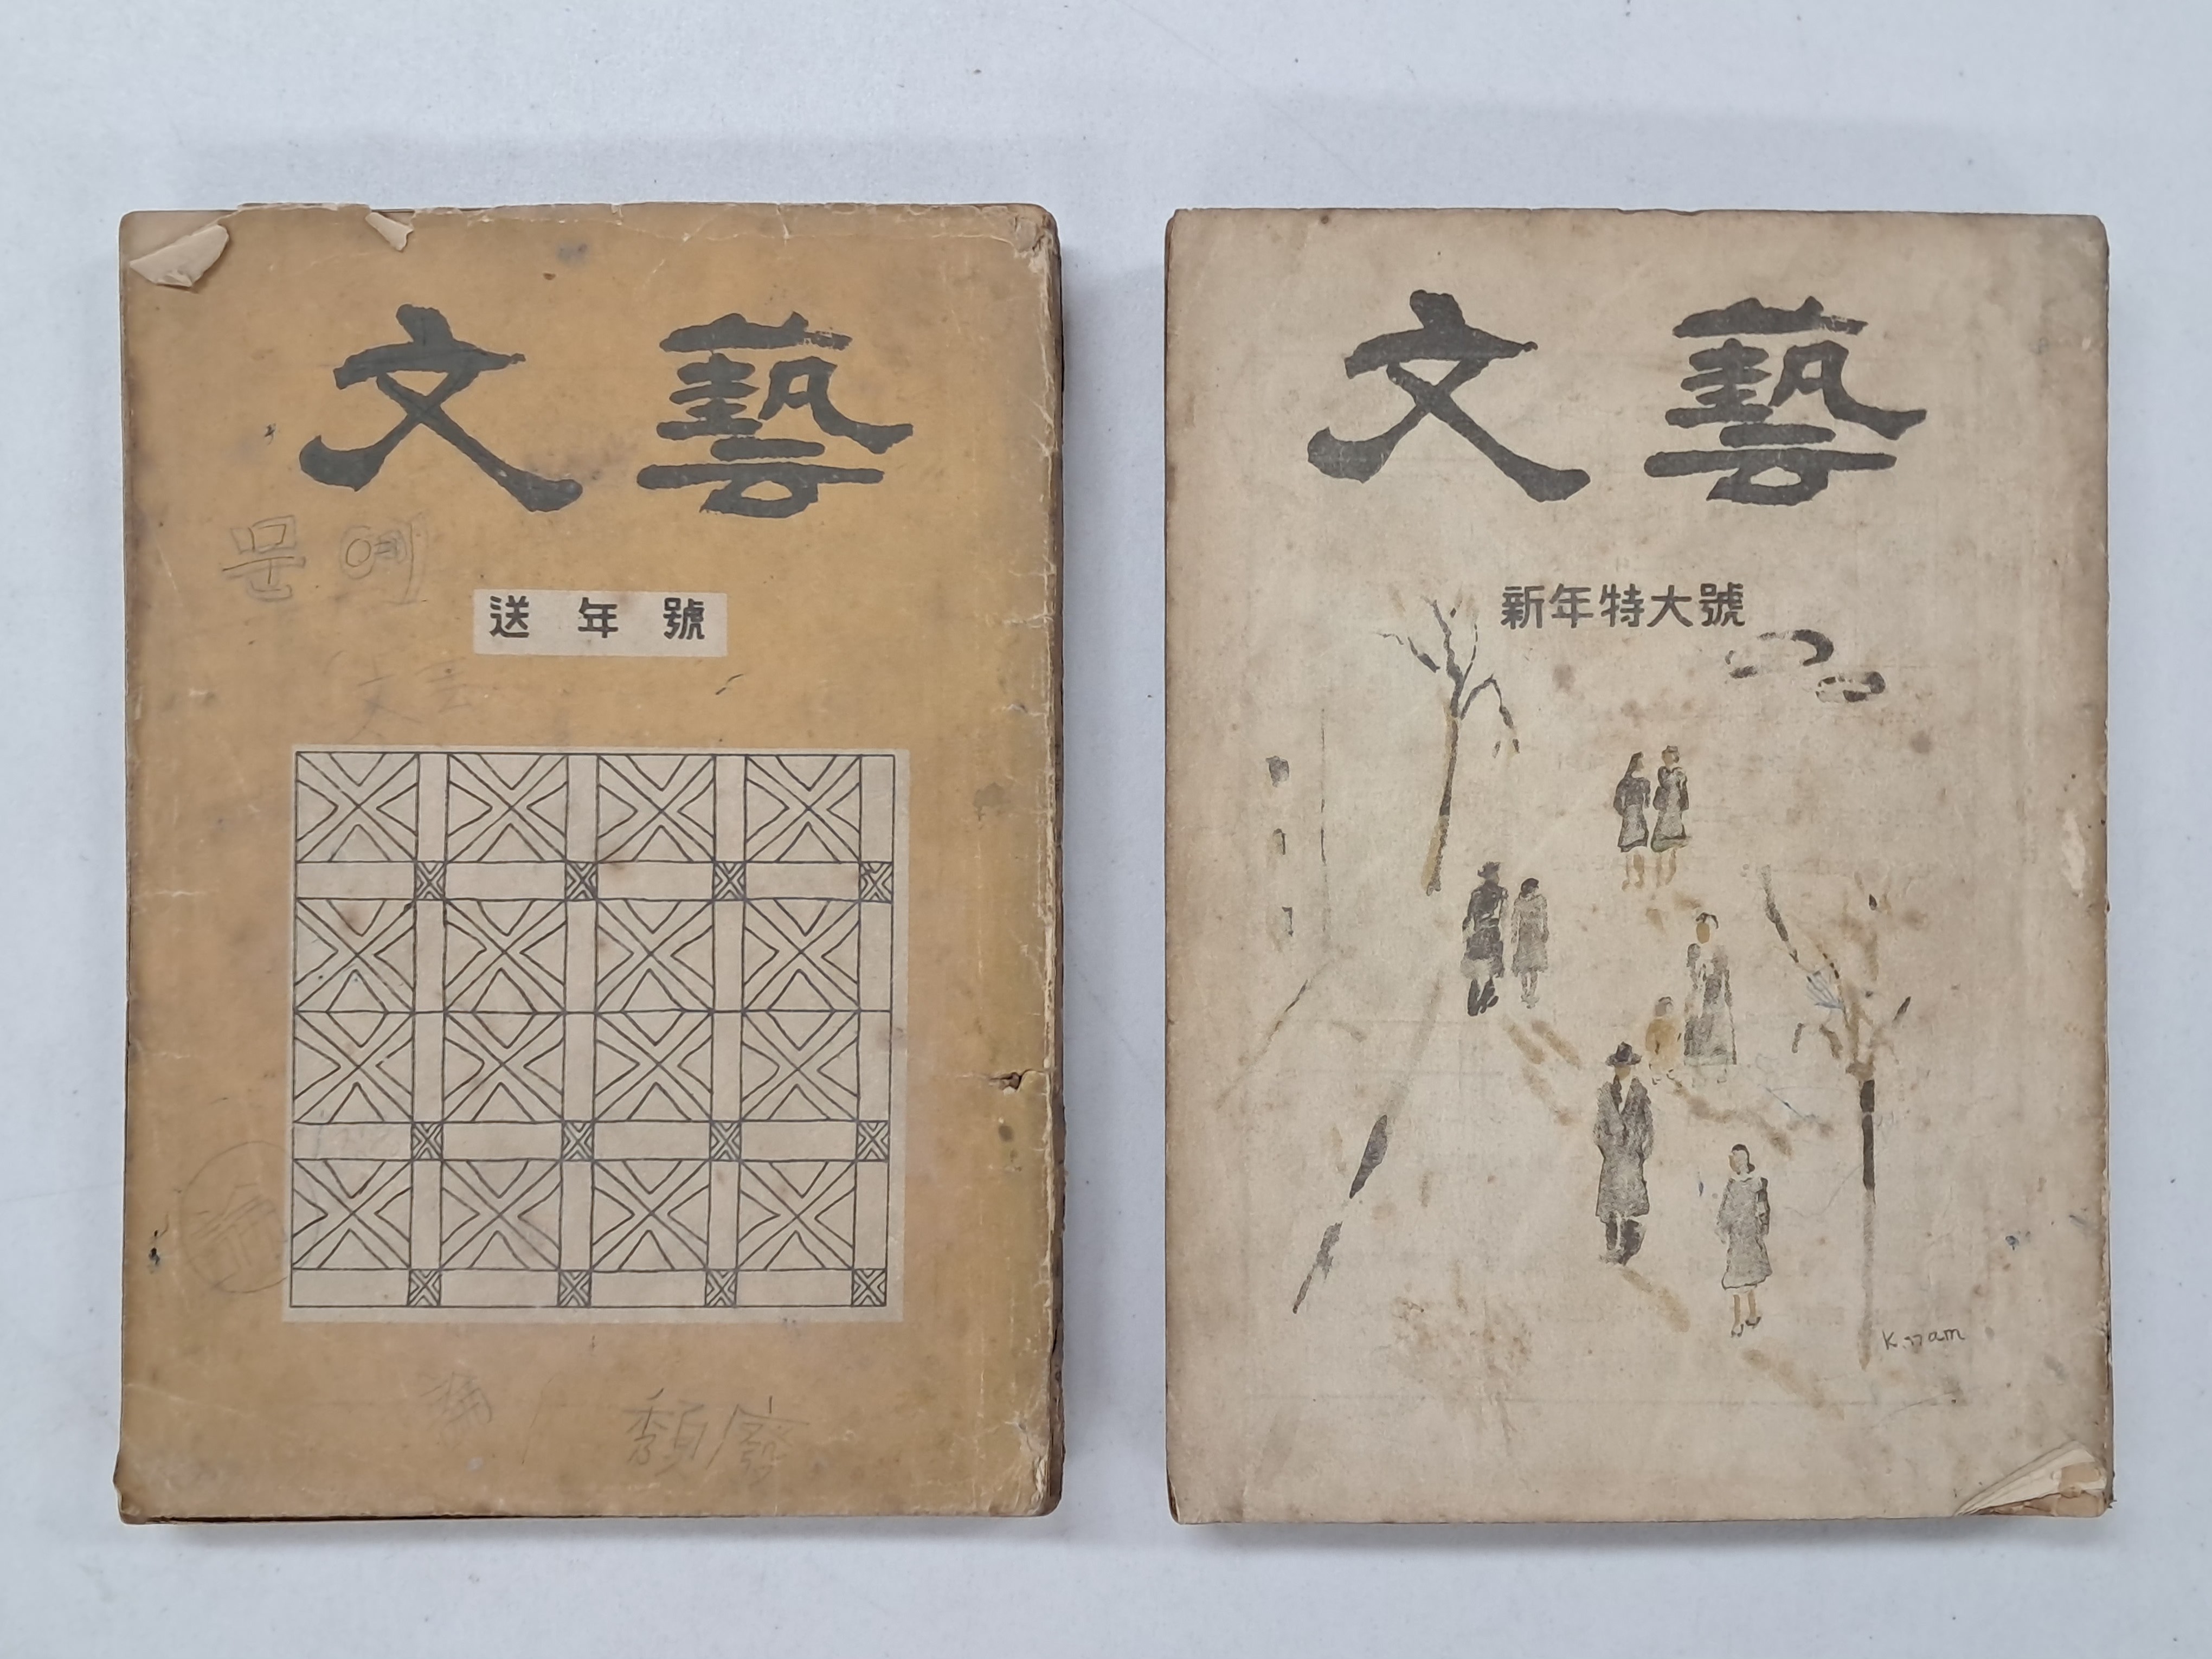 文藝
문예
送年號
文藝
新年特大號
K. nam